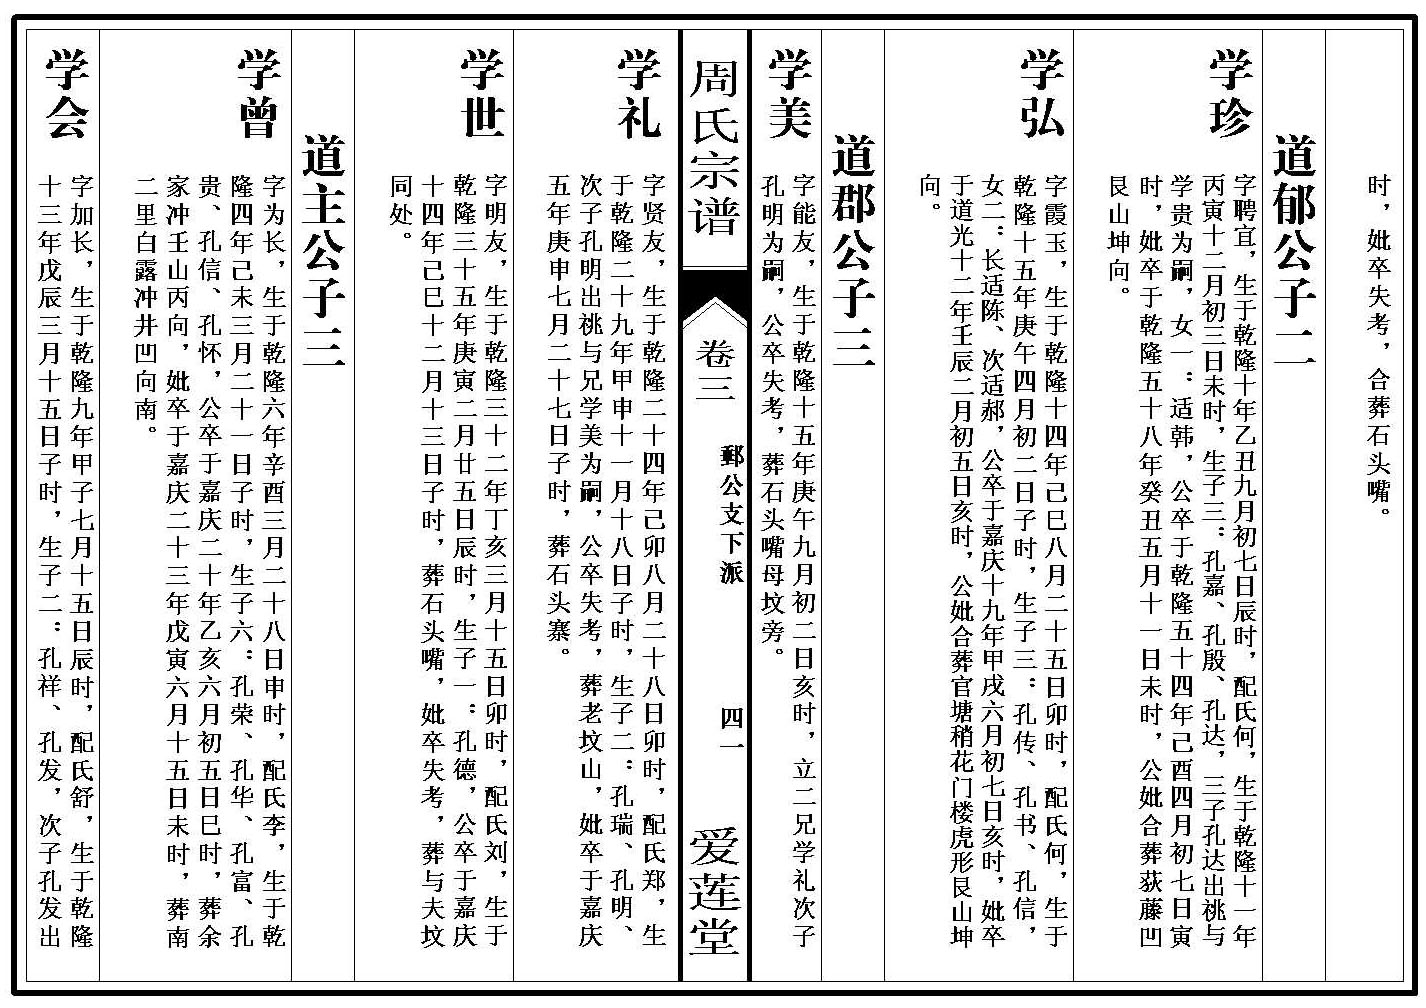 时，妣卒失考，合葬石头嘴。
道郁公子二
学珍
字聘宜，生于乾隆十年乙丑九月初七日辰时，配氏何，生于乾隆十一年
丙寅十二月初三日未时，生子三：孔嘉、孔殷、孔达，三子孔达出祧与
学贵为嗣，女一：适韩，公卒于乾隆五十四年己酉四月初七日寅
时，妣卒于乾隆五十八年癸丑五月十一日未时，公妣合葬荻藤凹
艮山坤向。
学弘
字霞玉，生于乾隆十四年己巳八月二十五日卯时，配氏何，生于
乾隆十五年庚午四月初二日子时，生子三：孔传、孔书、孔信，
女二：长适陈、次适郝，公卒于嘉庆十九年甲戌六月初七日亥时，妣卒
于道光十二年壬辰二月初五日亥时，公妣合葬官塘稍花门楼虎形艮山坤
向。
道郡公子三
学美
字能友，生于乾隆十五年庚午九月初二日亥时，立二兄学礼次子
孔明为嗣，公卒失考，葬石头嘴母坟旁。
周氏宗谱
卷三
郵公支下派
四一
爱莲堂
学礼
字贤友，生于乾隆二十四年己卯八月二十八日卯时，配氏郑，生
于乾隆二十九年甲申十一月十八日子时，生子二：孔瑞、孔明、
次子孔明出祧与兄学美为嗣，公卒失考，葬老坟山，妣卒于嘉庆
五年庚申七月二十七日子时，葬石头寨。
学世
字明友，生于乾隆三十二年丁亥三月十五日卯时，配氏刘，生于
乾隆三十五年庚寅二月廿五日辰时，生子一：孔德，公卒于嘉庆
十四年己巳十二月十三日子时，葬石头嘴，妣卒失考，葬与夫坟
同处。
道主公子三
学曾
字为长，生于乾隆六年辛酉三月二十八日申时，配氏李，生于乾
隆四年己未三月二十一日子时，生子六：孔荣、孔华、孔富、孔
贵、孔信、孔怀，公卒于嘉庆二十年乙亥六月初五日巳时，葬余
家冲壬山丙向，妣卒于嘉庆二十三年戊寅六月十五日未时，葬南
二里白露冲井凹向南。
学会
字加长，生于乾隆九年甲子七月十五日辰时，配氏舒，生于乾隆
十三年戊辰三月十五日子时，生子二：孔祥、孔发，次子孔发出